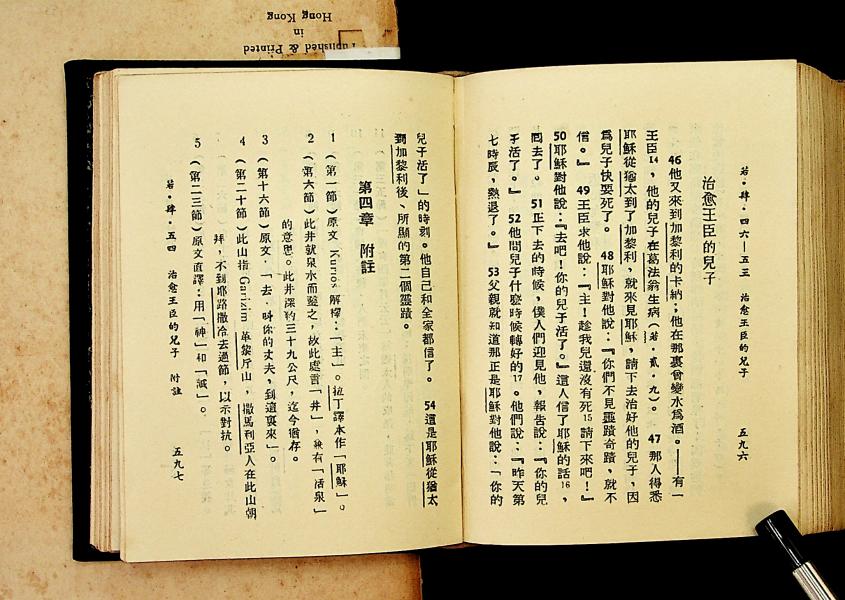 Published & Printed
in
Hong Kong
若．肆．四六—五三　治愈王臣的兒子　五九六
治愈王臣的兒子
46他又來到加黎利的卡納；他在那裏曾變水爲酒。——有一
王臣14，他的兒子在葛法翁生病（若．貳．九）。　47那人得悉
耶穌從猶太到了加黎利，就來見耶穌，請下去治好他的兒子，因
爲兒子快要死了。　48耶穌對他說：『你們不見靈蹟奇蹟，就不
信。』　49王臣求他說：『主！趁我兒還沒有死15請下來吧！』
50耶穌對他說：『去吧！你的兒子活了。』這人信了耶穌的話16，
囘去了。　51正下去的時候，僕人們迎見他，報告說：『你的兒
子活了。』　52他問兒子什麼時候轉好的17。他們說：『昨天第
七時辰，熱退了。』　53父親就知道那正是耶穌對他說：「你的
兒子活了」的時刻。他自己和全家都信了。　54這是耶穌從猶太
到加黎利後、所顯的第二個靈蹟。
第四章　附註
1（第一節）原文 Kurios 解釋：「主」。拉丁譯本作「耶穌」。
2（第六節）此井就泉水而鑿之，故此處言「井」，兼有「活泉」
的意思。此井深約三十九公尺，迄今猶存。
3（第十六節）原文，「去．呌你的丈夫，到這裏來」。
4（第二十節）此山指 Garizim 革黎斤山，撒馬利亞人在此山朝
拜，不到耶路撒冷去過節，以示對抗。
5（第二三節）原文直譯：用「神」和「誠」。
若．肆．五四　治愈王臣的兒子　附註　五九七